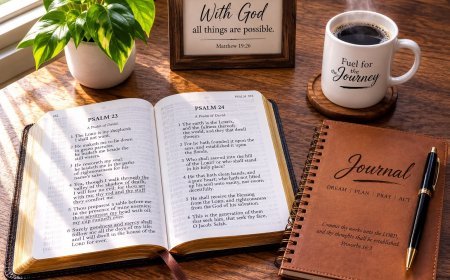 With God
all things are possible.
Matthew 19:26
Fuel for
the Journey
PSALM 23
A Psalm of David
1 The LORD is my shepherd;
I shall not want.
2 He maketh me to lie down
in green pastures:
still waters.
3 He restoreth my soul:
he leadeth me in the paths
of righteousness for his
name's sake.
4 Yea, though I walk through the
valley of the shadow of death,
I will fear no evil: for thou art
with me; thy rod and thy staff
they comfort me.
5 Thou preparest a table before me
in the presence of mine enemies:
thou anointest my head with oil;
my cup runneth over.
6 Surely goodness and mercy shall
follow me all the days of my life,
and I will dwell in the house of the
LORD for ever.
PSALM 24
A Psalm of David
1 The earth is the LORD's,
and the fulness thereof;
the world, and they that dwell
therein.
2 For he hath founded it upon the
seas, and established it upon
the floods.
3 Who shall ascend into the hill
of the LORD? or who shall stand
in his holy place?
4 He that hath clean hands, and
a pure heart; who hath not lifted
up his soul unto vanity, nor sworn
deceitfully.
5 He shall receive the blessing
from the LORD, and righteousness
from the God of his salvation.
6 This is the generation of them
that seek him, that seek thy face,
O Jacob. Selah.
Journal
DREAM | PLAN | PRAY | ACT
Commit thy works unto the LORD,
and thy thoughts shall be established.
Proverbs 16:3